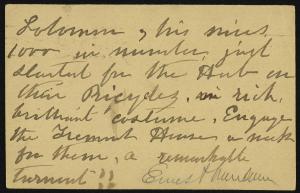 Solomon & his wives
1000 in number, just
started for the Hub on
their Bicycles, in rich,
brilliant costume, Engage
the Tremont House a week
for them, a remarkable
turnout!!
Ernest